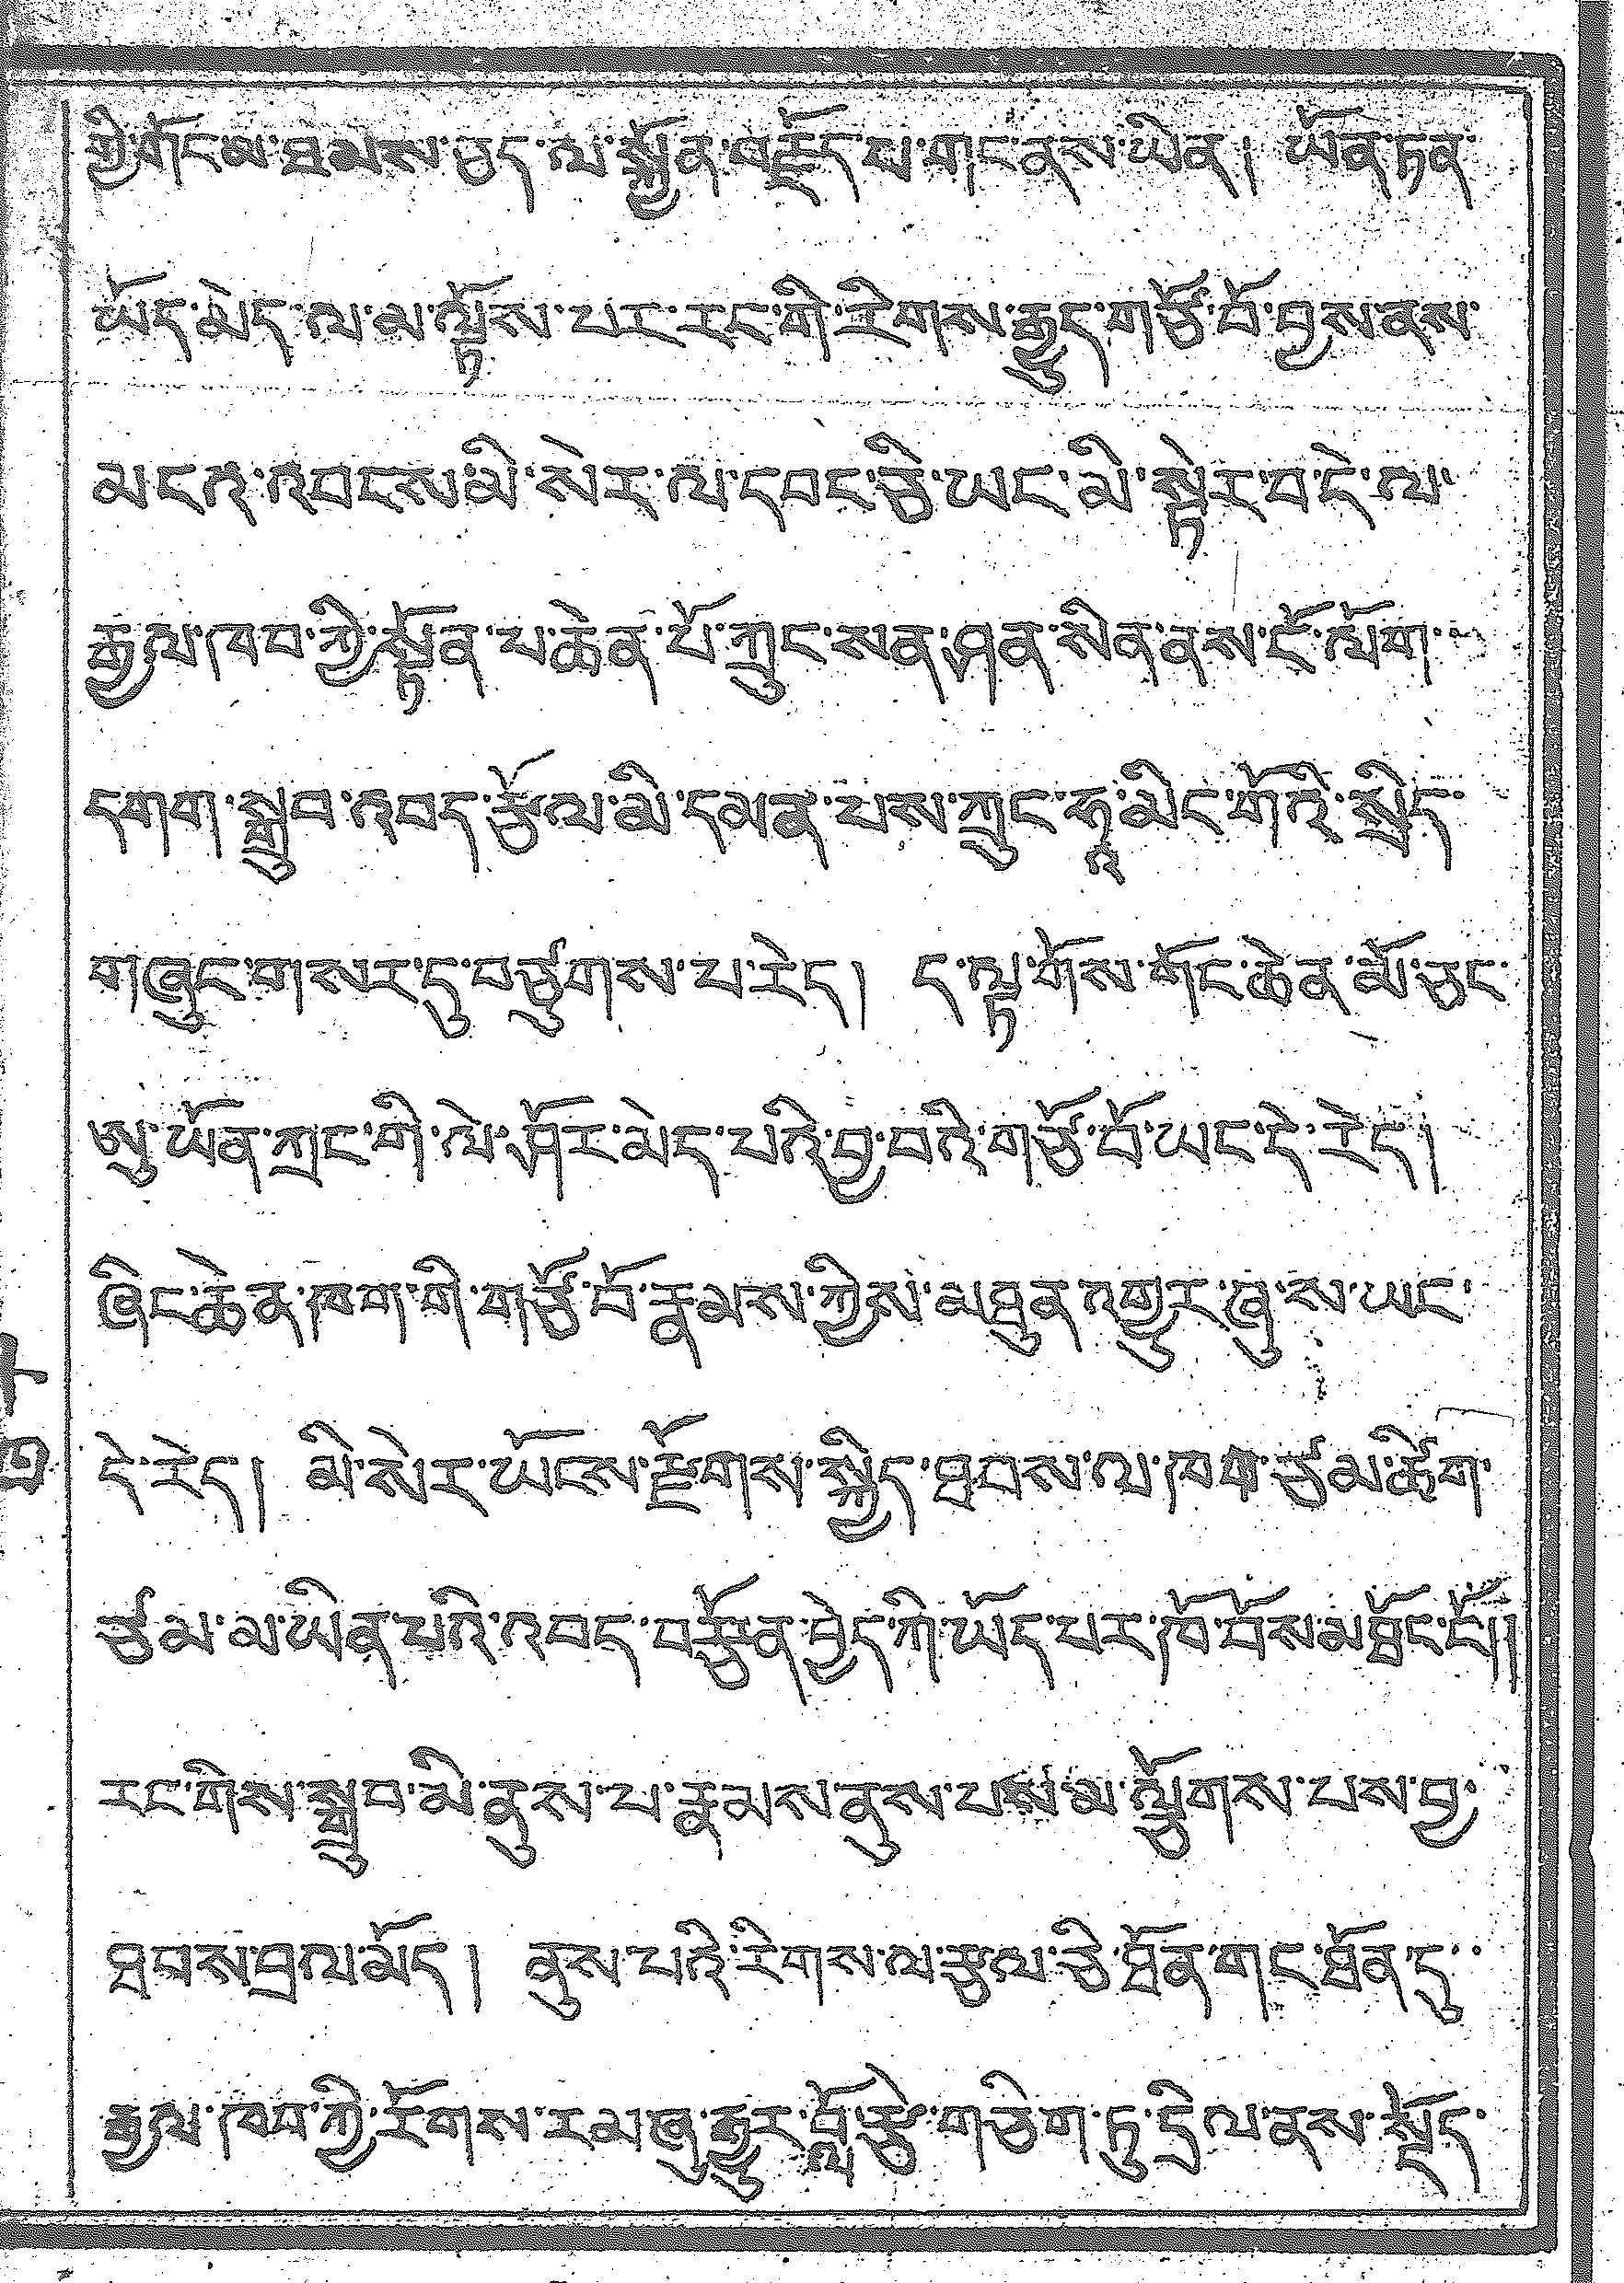 ཀྱི་གོང་མ་ཐམས་ཅད་ལ་སྐྱོན་བརྗོད་པ་གང་ནས་ཡིན། ཡོན་ཏན་
ཡོད་མེད་ལ་མ་ལྟོས་པར་རང་གི་རིགས་རྒྱུད་གཙོ་བོ་བྱས་ནས་
མངའ་འབངས་མི་སེར་ལ་དབང་ཅི་ཡང་མི་སྟེར་བ་དེ་ལ་
རྒྱལ་ཁབ་ཀྱི་སྟོན་པ་ཆེན་པོ་ཀྲུང་སན་ཤན་སེན་ནས་ངོ་ལོག་
དགག་སྒྲུབ་འབད་རྩོལ་མི་དམན་པས་ཀྲུང་ཧྭ་མིང་གོའི་སྲིད་
གཞུང་གསར་དུ་བཙུགས་པ་རེད། ད་ལྟ་གོས་གོང་ཆེན་མོ་ཅང་
ཨུ་ཡོན་ཀྲང་གི་ལེ་ཤོར་མེད་པའི་བྱ་བའི་གཙོ་བོ་ཡང་དེ་རེད།
ཞིང་ཆེན་ཁག་གི་གཙོ་བོ་རྣམས་ཀྱིས་མཐུན་འགྱུར་ཞུ་ས་ཡང་
དེ་རེད། མི་སེར་ཡོངས་རྫོགས་སྐྱིད་ཐབས་ལ་ཁག་ཙམ་ཚིག་
ཙམ་མ་ཡིན་པའི་འབད་བརྩོན་བྱེད་ཀི་ཡོད་པར་ཁོ་བོས་མཐོང་ངོ༌།།
རང་གིས་སྒྲུབ་མི་ནུས་པ་རྣམས་ནུས་པས་མ་ལྕོགས་པས་བྱ་
ཐབས་བྲལ་མོད། ནུས་པའི་རིགས་ལ་རྩལ་ཅི་ཐོན་གང་ཐོན་དུ་
རྒྱལ་ཁབ་ཀྱི་རོགས་རམ་ཞུ་རྒྱུར་བློ་རྩེ་གཅིག་ཏུ་དྲིལ་ནས་སྡོད་